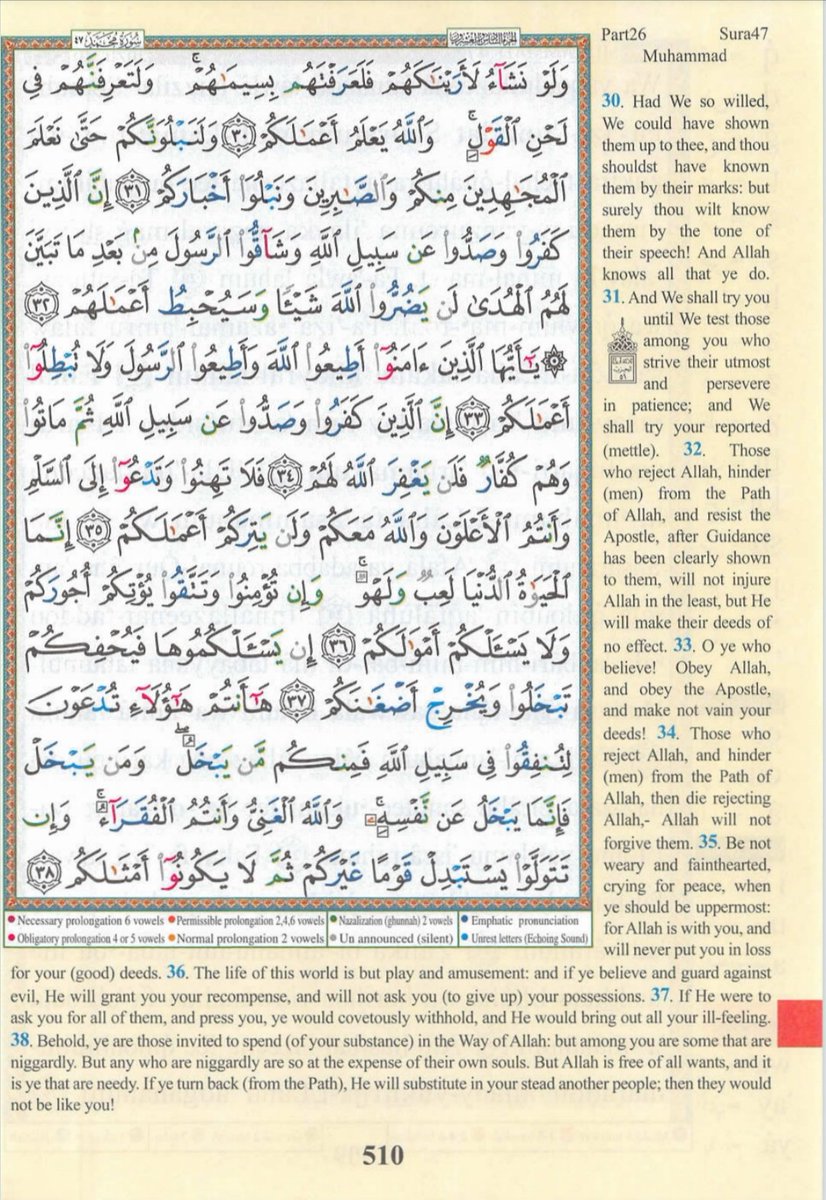 سورة محمد ٤٧
الجزء السادس والعشرون
وَلَوْ نَشَآءُ لَأَرَيْنَٰكَهُمْ فَلَعَرَفْتَهُم بِسِيمَٰهُمْ ۚ وَلَتَعْرِفَنَّهُمْ فِى
لَحْنِ ٱلْقَوْلِ ۚ وَٱللَّهُ يَعْلَمُ أَعْمَٰلَكُمْ ﴿٣٠﴾ وَلَنَبْلُوَنَّكُمْ حَتَّىٰ نَعْلَمَ
ٱلْمُجَٰهِدِينَ مِنكُمْ وَٱلصَّٰبِرِينَ وَنَبْلُوَا۟ أَخْبَارَكُمْ ﴿٣١﴾ إِنَّ ٱلَّذِينَ
كَفَرُوا۟ وَصَدُّوا۟ عَن سَبِيلِ ٱللَّهِ وَشَآقُّوا۟ ٱلرَّسُولَ مِنۢ بَعْدِ مَا تَبَيَّنَ
لَهُمُ ٱلْهُدَىٰ لَن يَضُرُّوا۟ ٱللَّهَ شَيْـًٔا وَسَيُحْبِطُ أَعْمَٰلَهُمْ ﴿٣٢﴾
۞ يَٰٓأَيُّهَا ٱلَّذِينَ ءَامَنُوٓا۟ أَطِيعُوا۟ ٱللَّهَ وَأَطِيعُوا۟ ٱلرَّسُولَ وَلَا تُبْطِلُوٓا۟
أَعْمَٰلَكُمْ ﴿٣٣﴾ إِنَّ ٱلَّذِينَ كَفَرُوا۟ وَصَدُّوا۟ عَن سَبِيلِ ٱللَّهِ ثُمَّ مَاتُوا۟
وَهُمْ كُفَّارٌ فَلَن يَغْفِرَ ٱللَّهُ لَهُمْ ﴿٣٤﴾ فَلَا تَهِنُوا۟ وَتَدْعُوٓا۟ إِلَى ٱلسَّلْمِ
وَأَنتُمُ ٱلْأَعْلَوْنَ وَٱللَّهُ مَعَكُمْ وَلَن يَتِرَكُمْ أَعْمَٰلَكُمْ ﴿٣٥﴾ إِنَّمَا
ٱلْحَيَوٰةُ ٱلدُّنْيَا لَعِبٌ وَلَهْوٌ ۚ وَإِن تُؤْمِنُوا۟ وَتَتَّقُوا۟ يُؤْتِكُمْ أُجُورَكُمْ
وَلَا يَسْـَٔلْكُمْ أَمْوَٰلَكُمْ ﴿٣٦﴾ إِن يَسْـَٔلْكُمُوهَا فَيُحْفِكُمْ
تَبْخَلُوا۟ وَيُخْرِجْ أَضْغَٰنَكُمْ ﴿٣٧﴾ هَٰٓأَنتُمْ هَٰٓؤُلَآءِ تُدْعَوْنَ
لِتُنفِقُوا۟ فِى سَبِيلِ ٱللَّهِ فَمِنكُم مَّن يَبْخَلُ ۖ وَمَن يَبْخَلْ
فَإِنَّمَا يَبْخَلُ عَن نَّفْسِهِۦ ۚ وَٱللَّهُ ٱلْغَنِىُّ وَأَنتُمُ ٱلْفُقَرَآءُ ۚ وَإِن
تَتَوَلَّوْا۟ يَسْتَبْدِلْ قَوْمًا غَيْرَكُمْ ثُمَّ لَا يَكُونُوٓا۟ أَمْثَٰلَكُم ﴿٣٨﴾
Necessary prolongation 6 vowels Permissible prolongation 2,4,6 vowels Nazalization (ghunnah) 2 vowels Emphatic pronunciation
Obligatory prolongation 4 or 5 vowels Normal prolongation 2 vowels Un announced (silent) Unrest letters (Echoing Sound)
Part26 Sura47
Muhammad
30. Had We so willed,
We could have shown
them up to thee, and thou
shouldst have known
them by their marks: but
surely thou wilt know
them by the tone of
their speech! And Allah
knows all that ye do.
31. And We shall try you
until We test those
among you who
strive their utmost
and persevere
in patience; and We
shall try your reported
(mettle). 32. Those
who reject Allah, hinder
(men) from the Path
of Allah, and resist the
Apostle, after Guidance
has been clearly shown
to them, will not injure
Allah in the least, but He
will make their deeds of
no effect. 33. O ye who
believe! Obey Allah,
and obey the Apostle,
and make not vain your
deeds! 34. Those who
reject Allah, and hinder
(men) from the Path of
Allah, then die rejecting
Allah,- Allah will not
forgive them. 35. Be not
weary and fainthearted,
crying for peace, when
ye should be uppermost:
for Allah is with you, and
will never put you in loss
for your (good) deeds. 36. The life of this world is but play and amusement: and if ye believe and guard against
evil, He will grant you your recompense, and will not ask you (to give up) your possessions. 37. If He were to
ask you for all of them, and press you, ye would covetously withhold, and He would bring out all your ill-feeling.
38. Behold, ye are those invited to spend (of your substance) in the Way of Allah: but among you are some that are
niggardly. But any who are niggardly are so at the expense of their own souls. But Allah is free of all wants, and it
is ye that are needy. If ye turn back (from the Path), He will substitute in your stead another people; then they would
not be like you!
510